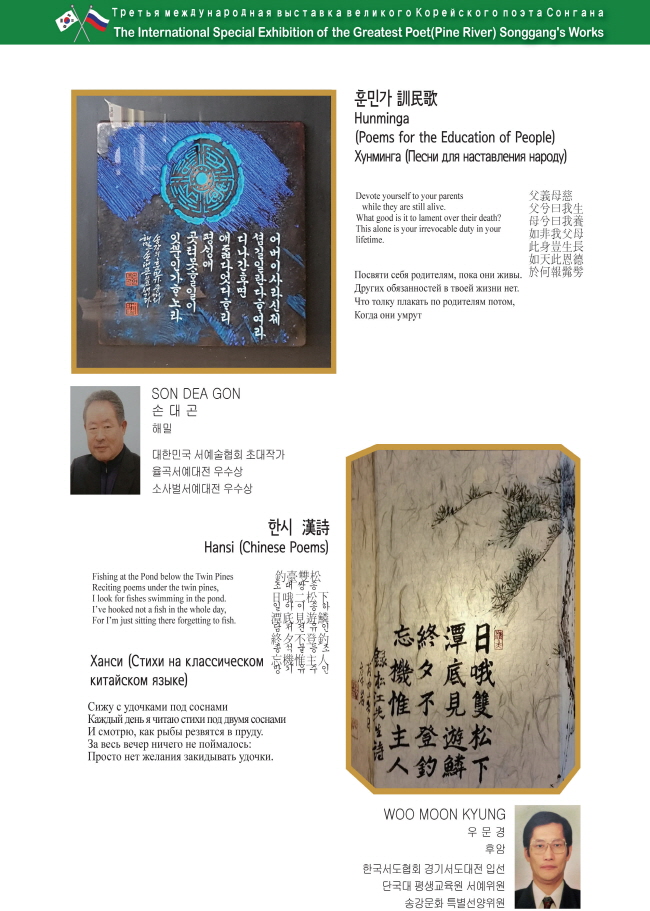 Третья международная выставка великого Корейского поэта Сонгана
The International Special Exhibition of the Greatest Poet(Pine River) Songgang's Works
훈민가 訓民歌
Hunminga
(Poems for the Education of People)
Хунминга (Песни для наставления народу)
Devote yourself to your parents
while they are still alive.
What good is it to lament over their death?
This alone is your irrevocable duty in your
lifetime.
父義母慈
父兮曰我生
母兮曰我養
如非我父母
此身豈生長
如天此恩德
於何報髴髣
Посвяти себя родителям, пока они живы.
Других обязанностей в твоей жизни нет.
Что толку плакать по родителям потом,
Когда они умрут
어버이 사라신제
섬길일란 다하여라
디나간 후면
애닯다 엇디하리
평생애
곳텨 못할 일이
잇뿐인가 하노라
SON DEA GON
손 대 곤
해밀
대한민국 서예술협회 초대작가
율곡서예대전 우수상
소사벌서예대전 우수상
한시 漢詩
Hansi (Chinese Poems)
Fishing at the Pond below the Twin Pines
Reciting poems under the twin pines,
I look for fishes swimming in the pond.
I've hooked not a fish in the whole day,
For I'm just sitting there forgetting to fish.
釣臺雙松
조대쌍송
日哦二松下
일아이송하
潭底見遊鱗
담저견유린
終夕不登釣
종석불등조
忘機惟主人
망기유주인
Ханси (Стихи на классическом
китайском языке)
Сижу с удочками под соснами
Каждый день я читаю стихи под двумя соснами
И смотрю, как рыбы резвятся в пруду.
За весь вечер ничего не поймалось:
Просто нет желания закидывать удочки.
日哦雙松下
潭底見遊鱗
終夕不登釣
忘機惟主人
錄松江先生詩
WOO MOON KYUNG
우 문 경
후암
한국서도협회 경기서도대전 입선
단국대 평생교육원 서예위원
송강문화 특별선양위원